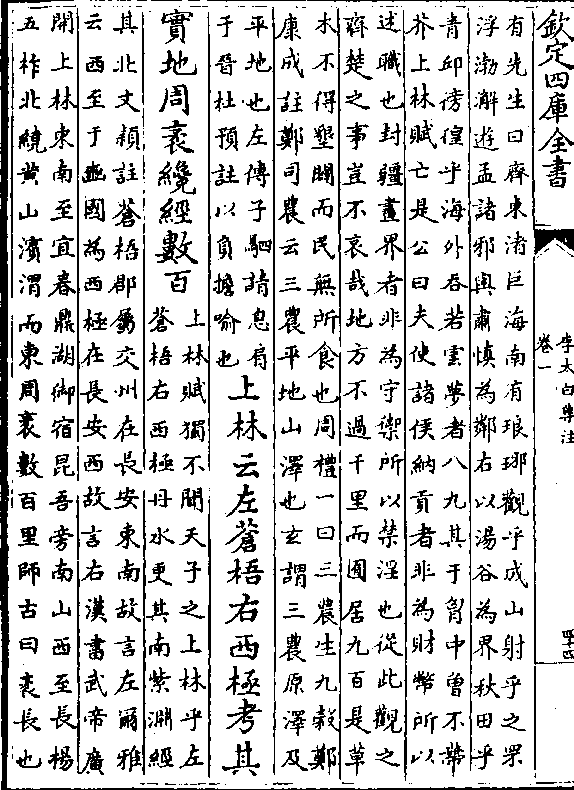 欽定四庫全書
李太白集注
卷一
四十四
有先生曰齊東渚巨海南有琅琊觀乎成山射乎之罘
浮渤澥遊孟諸邪與肅慎為鄰右以湯谷為界秋田乎
青邱徬徨乎海外吞若雲夢者八九其于胷中曽不蔕
芥上林賦亡是公曰夫使諸侯納貢者非為財幣所以
述職也封疆畫界者非為守禦所以禁淫也從此觀之
齊楚之事豈不哀哉地方不過千里而囿居九百是草
木不得墾闢而民無所食也周禮一曰三農生九榖鄭
康成註鄭司農云三農平地山澤也玄謂三農原澤及
平地也左傳子駟請息肩
于晉杜預註以負擔喻也
上林云左蒼梧右西極考其
實地周袤纔經數百
上林賦獨不聞天子之上林乎左
蒼梧右西極丹水更其南紫淵經
其北文穎註蒼梧郡屬交州在長安東南故言左爾雅
云西至于豳國為西極在長安西故言右漢書武帝廣
開上林東南至宜春鼎湖御宿昆吾旁南山西至長楊
五柞北繞黄山濱渭而東周袤數百里師古曰袤長也